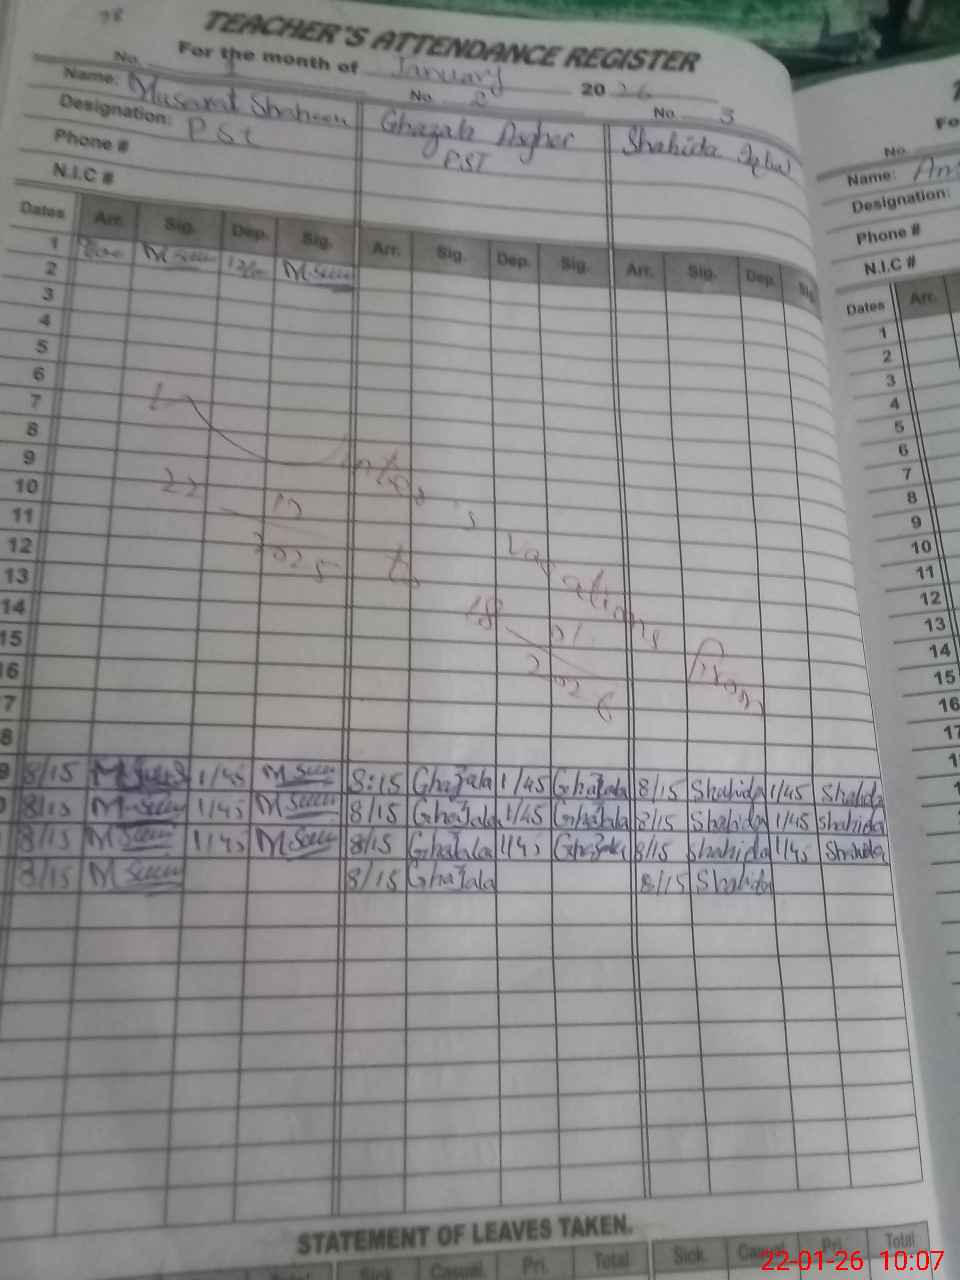 78
TEACHER'S ATTENDANCE REGISTER
For the month of January 2026
No. 1 No. 2 No. 3
Name: Musarat Shaheen Ghazala Asgher Shahida Iqbal
Designation: PST PST
Phone #
N.I.C #
Dates Arr. Sig. Dep. Sig. Arr. Sig. Dep. Sig. Arr. Sig. Dep. Sig
1 8/00
2
3
4
5
6
7
8
9
10
11
12
13
14
15
16
7
8
Winter's Vacations From
22 12 2025 to 18 01 2026
9 8/15 1/45 8:15 Ghazala 1/45 Ghazala 8/15 Shahida 1/45 Shahida
8/15 1/45 8/15 Ghazala 1/45 Ghazala 8/15 Shahida 1/45 Shahida
8/15 1/45 8/15 Ghazala 1/45 Ghazala 8/15 Shahida 1/45 Shahida
8/15 8/15 Ghazala 8/15 Shahida
STATEMENT OF LEAVES TAKEN.
Casual Pri. Total Sick. Casual Pri. Total
Fo
No.
Name:
Designation:
Phone #
N.I.C #
Dates Arr.
1
2
3
4
5
6
7
8
9
10
11
12
13
14
15
16
17
22-01-26 10:07